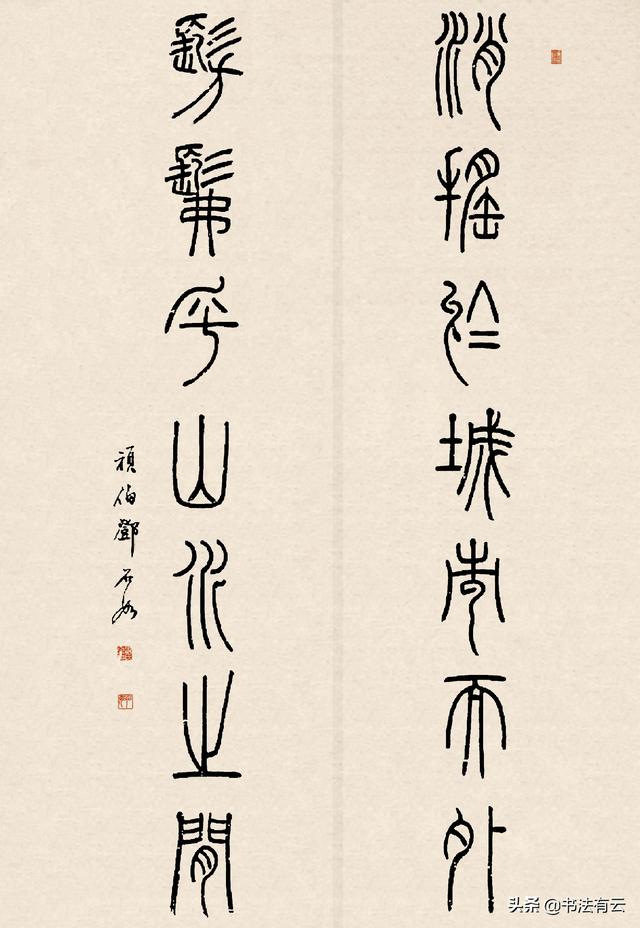 消搖於城市而外
髣髴乎山水之間
頑伯鄧石如
头条 @书法有云